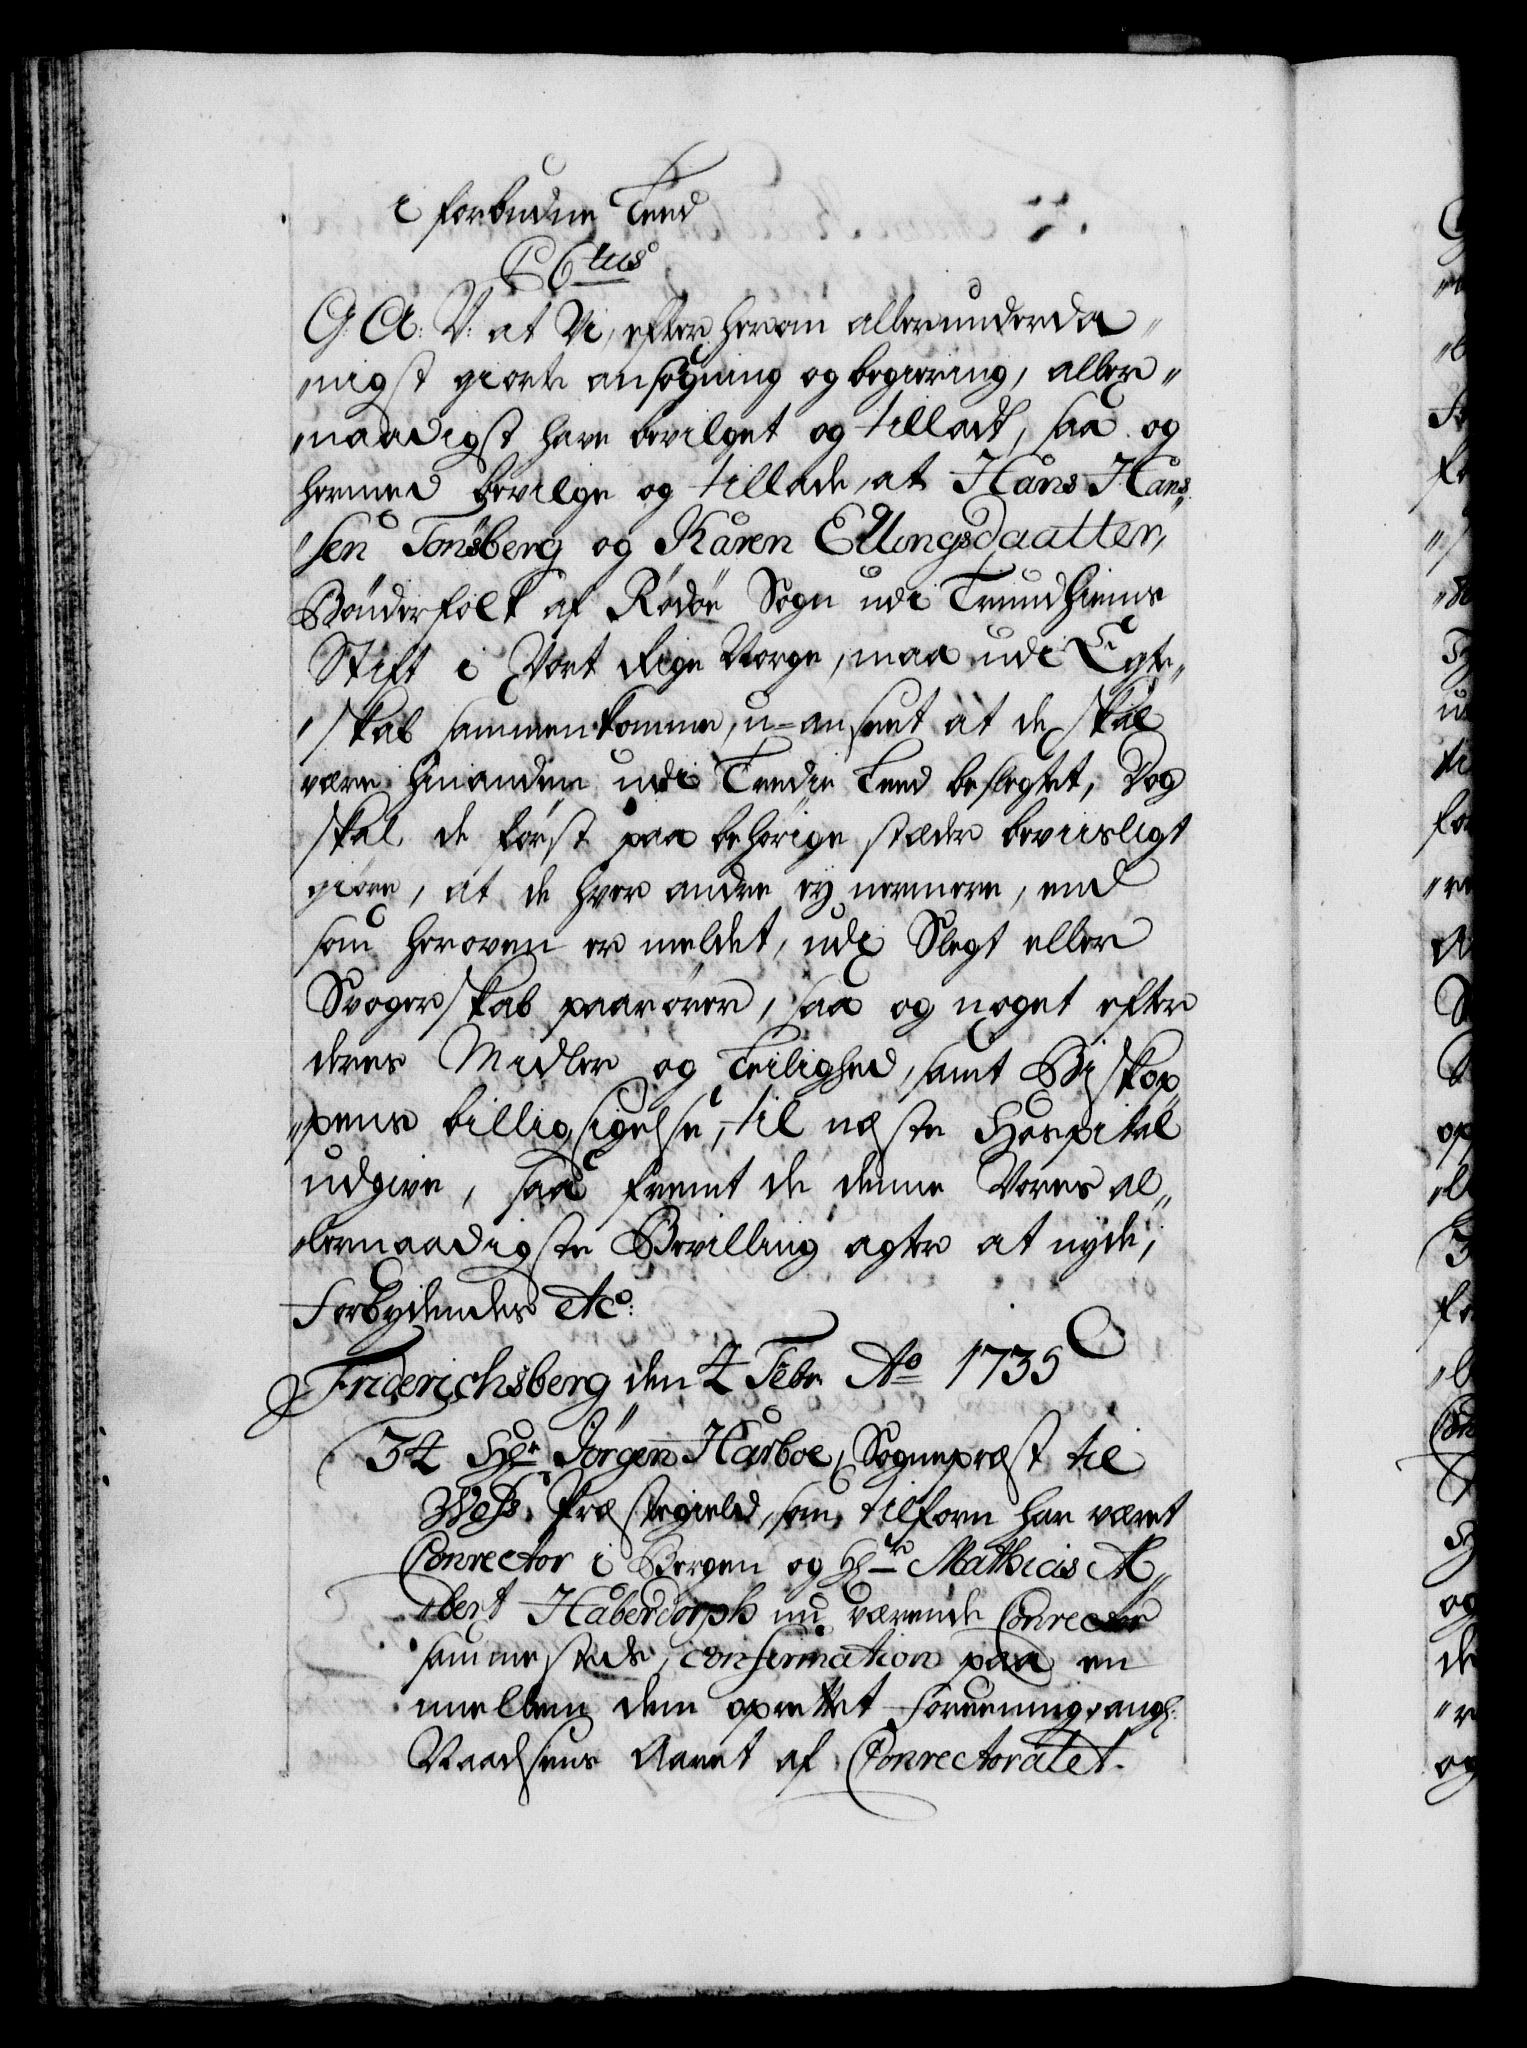 i forbudne Leed
C 6tus
G. A: V: at Vi, efter herom allerunderda„
„nigst giorte ansøgning og begiering, aller„
„naadigst have bevilget og tilladt, saa og
hermed bevilge og tillade, at Hans Hans„
„sen Tønsberg og Karen Ellingsdaatter,
Bønderfolk af Rødøe Sogn udi Trundhiems
Stift i Vort Rige Norge, maa udi Egte„
„skab sammenkomme, u-anseet at de skal
være hinanden udi Tredie Leed beslegtet, Dog
skal de først paa behørige stæder beviisligt
giøre, at de hver andre ej nermere, end
som heroven er meldet, udi Slegt eller
Svogerskab paarører, saa og noget efter
deres Midler og Leilighed, samt Biskop„
„pens billigsigelse, til næste Hospital
udgive, saa fremt de denne Vores al„
„lernaadigste Bevilling agter at nyde,
Forbydendes etc:
Friderichsberg den 4 Febr. Ao 1735
34 Hr Jørgen Harboe, Sognepræst til
Woss Præstegield, som tilforn har været
Conrector i Bergen og Hr Mathias Al„
„bert Haberdorph nu værende Conrector
sammesteds, confirmation paa en
mellem dem oprettet foreening angl:
Naadsens Aaret af Conrectoratet.